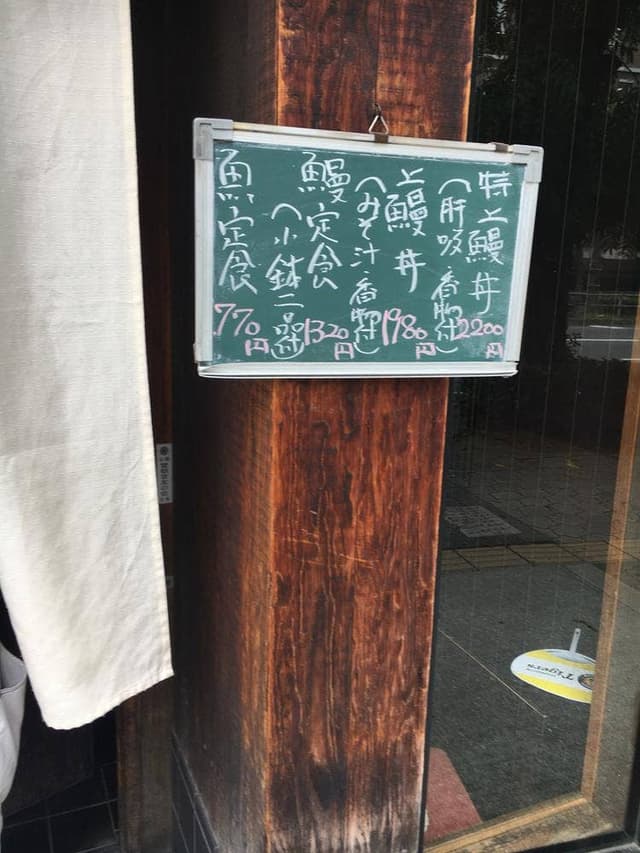 特上鰻丼
(肝吸・香物付) 2200円
上鰻丼
(みそ汁・香物付) 1980円
鰻定食
(小鉢二品付) 1320円
魚定食
770円
Tigers